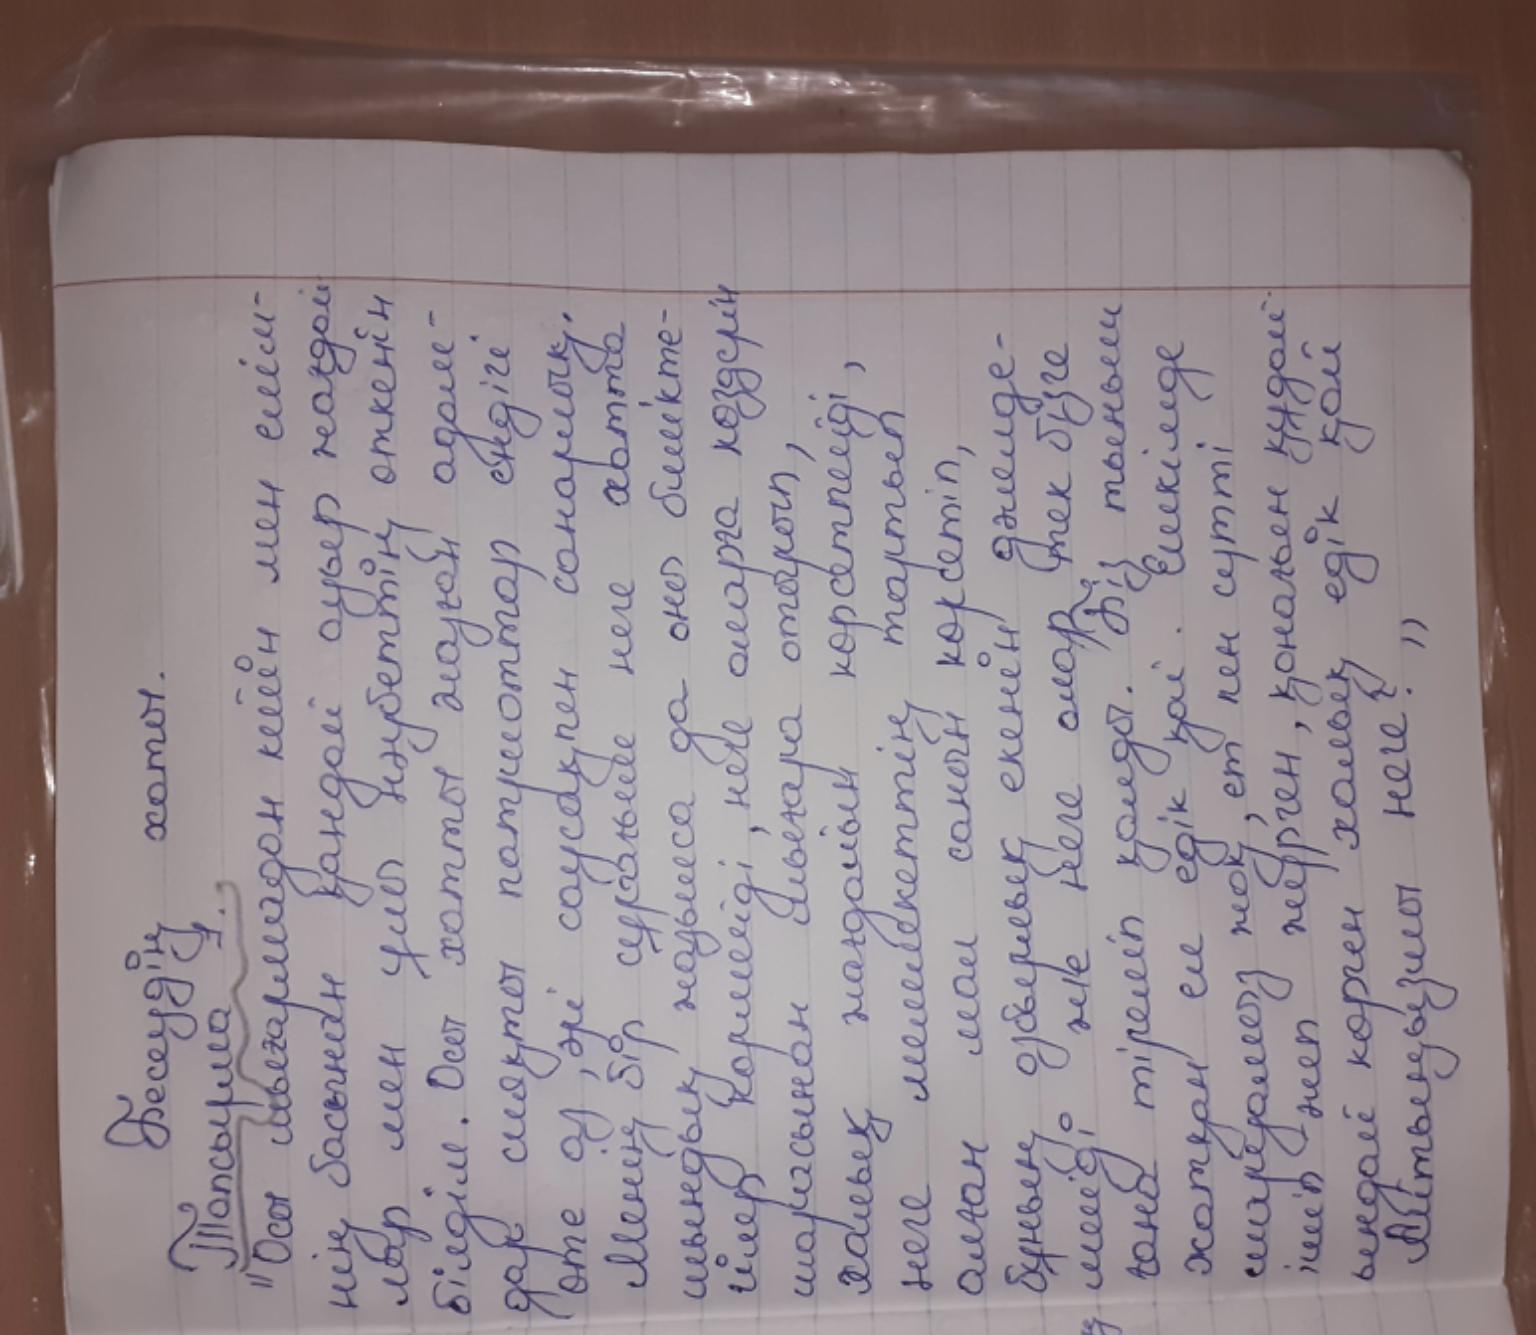 Бесеудің хаты.
Тапсырма 1.
"Осы шығармадан кейін мен елім-
нің басынан қандай ауыр жағдай
лар мен ұлы нәубеттің өткенін
білдім. Осы хатты жазған адам-
дар сияқты патриоттар ендігі
өте аз, әрі саусақпен санарлық.
Менің бір сұрағым неге хатта
шындық жазылса да оны билікте-
гілер көрмейді, неге оларға көздерін
шарасынан шығара отырып,
халық жағдайын көрсетпейді,
неге мемлекеттің тартып
алған мал санын көрсетіп,
бұның озбырлық екенін дәлелде-
мейді. Әлде неге олар тек бізге
ғана тіреліп қалды. Біз тыныш
жатқан ел едік қой. Ешкімде
шаруамыз жоқ, ет пен сүтті
ішіп-жеп жүрген, қонағын құдай-
ындай көрген халық едік қой
Айтыңызшы неге?"